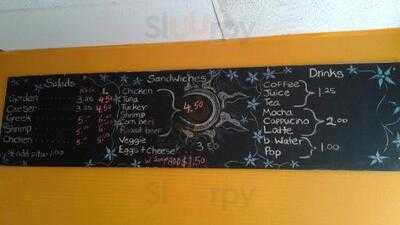 Sluurpy
Salads
REG L
Garden 3.25 4.50
Caesar 3.25 4.50
Greek
Shrimp
Chicken
add pita 1.00
Sandwiches
Chicken
Tuna
Turkey
Shrimp
Corn beef
Roast beef
4.50
Veggie
Eggs + Cheese
3.50
w soup add $1.50
Drinks
Coffee
Juice
Tea
1.25
Mocha
Cappucino
Latte
2.00
b. Water
Pop
1.00
Sluurpy